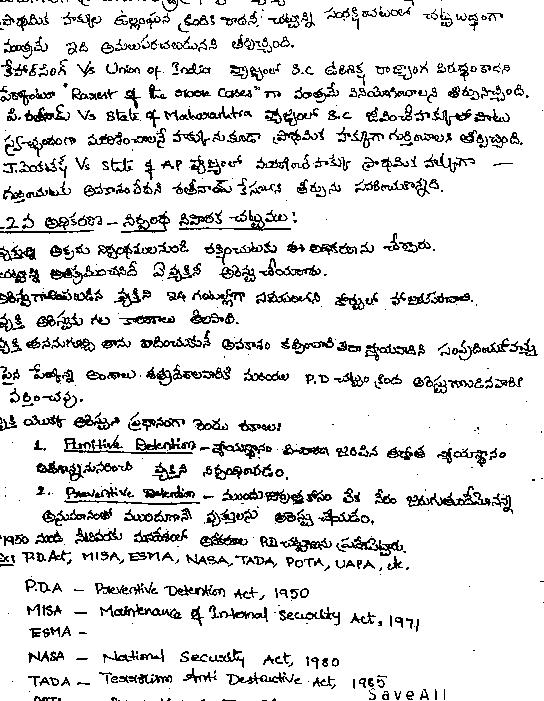 ప్రాథమిక హక్కుల ఉల్లంఘన క్రిందికి రాదనీ చట్టాన్ని సవరించటంలో చట్టబద్ధంగా
మాత్రమే ఇది అమలుపరచబడునని తీర్పిచ్చింది.
కేహార్‌సింగ్ Vs Union of India వ్యాజ్యంలో S.C ఉరిశిక్ష రాజ్యాంగ విరుద్ధం కాదని
పేర్కొంటూ "Rarest of the Cases" గా మాత్రమే వినియోగించాలని తీర్పునిచ్చింది.
పి. రతీనామ్ Vs State of Maharashtra వ్యాజ్యంలో S.C జీవించే హక్కుతో పాటు
స్వచ్ఛందంగా మరణించాలనే హక్కును కూడా ప్రాథమిక హక్కుగా గుర్తించాలని తీర్పిచ్చింది.
Vs State of AP వ్యాజ్యంలో మరణించే హక్కు ప్రాథమిక హక్కుగా —
గుర్తించుటకు అవకాశం లేదని రతీనామ్ కేసులోని తీర్పును సవరించుకొన్నది.
22వ అధికరణ – నిర్బంధ నివారక చట్టములు :
వ్యక్తుల్ని అక్రమ నిర్బంధములనుండి రక్షించుటకు ఈ అధికరణను చేర్చారు.
చట్టాన్ని అతిక్రమించనిదే ఏ వ్యక్తిని అరెస్టు చేయరాదు.
అరెస్టుగావింపబడిన వ్యక్తిని 24 గంటల్లోగా సమీపంలోని కోర్టులో హాజరుపరచాలి.
వ్యక్తి అరెస్టుకు గల కారణాలు తెలపాలి.
వ్యక్తి తనను గూర్చి తాను వాదించుకునే అవకాశం కల్పించాలి లేదా న్యాయవాదిని సంప్రదించుకోవచ్చు
పైన పేర్కొన్న అంశాలు శత్రుదేశాలవారికి మరియు P.D చట్టం క్రింద అరెస్టుగాబడినవారికి
వర్తించవు.
వ్యక్తి యొక్క అరెస్టులు ప్రధానంగా రెండు రకాలు:
1. Punitive Detention – న్యాయస్థానం విచారణ జరిపిన తర్వాత న్యాయస్థానం
వ్యక్తిని నిర్బంధించడం.
2. Preventive Detention – ముందు జాగ్రత్త కోసం వేరే నేరం జరుగుతుందేమోనన్న
అనుమానంతో ముందుగానే వ్యక్తులను అరెస్టు చేయడం.
1950 నుండి నేటివరకు మనదేశంలో అనేకరకాల P.D చట్టాలను ప్రవేశపెట్టారు.
Ex: P.D.Act, MISA, ESMA, NASA, TADA, POTA, UAPA, etc.
P.D.A – Preventive Detention Act, 1950
MISA – Maintenance of Internal Security Act, 1971
ESMA –
NASA – National Security Act, 1980
TADA – Terrorism Anti Destructive Act, 1985
SaveAll